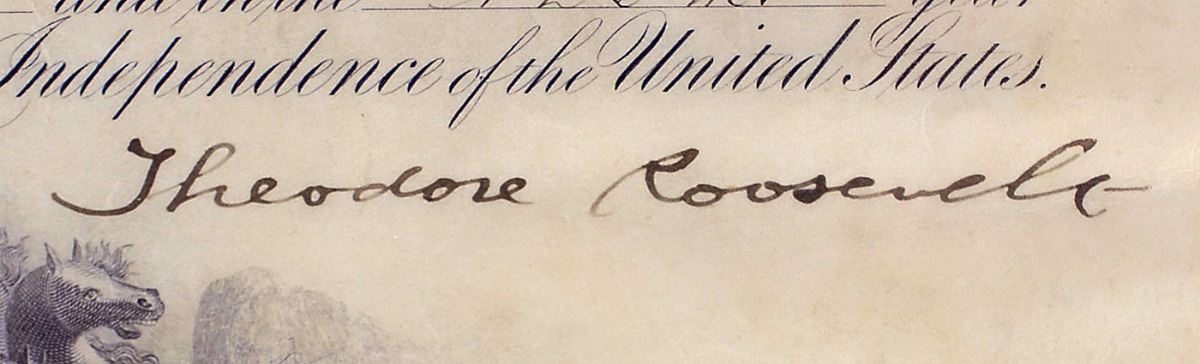 and in the year
Independence of the United States.
Theodore Roosevelt